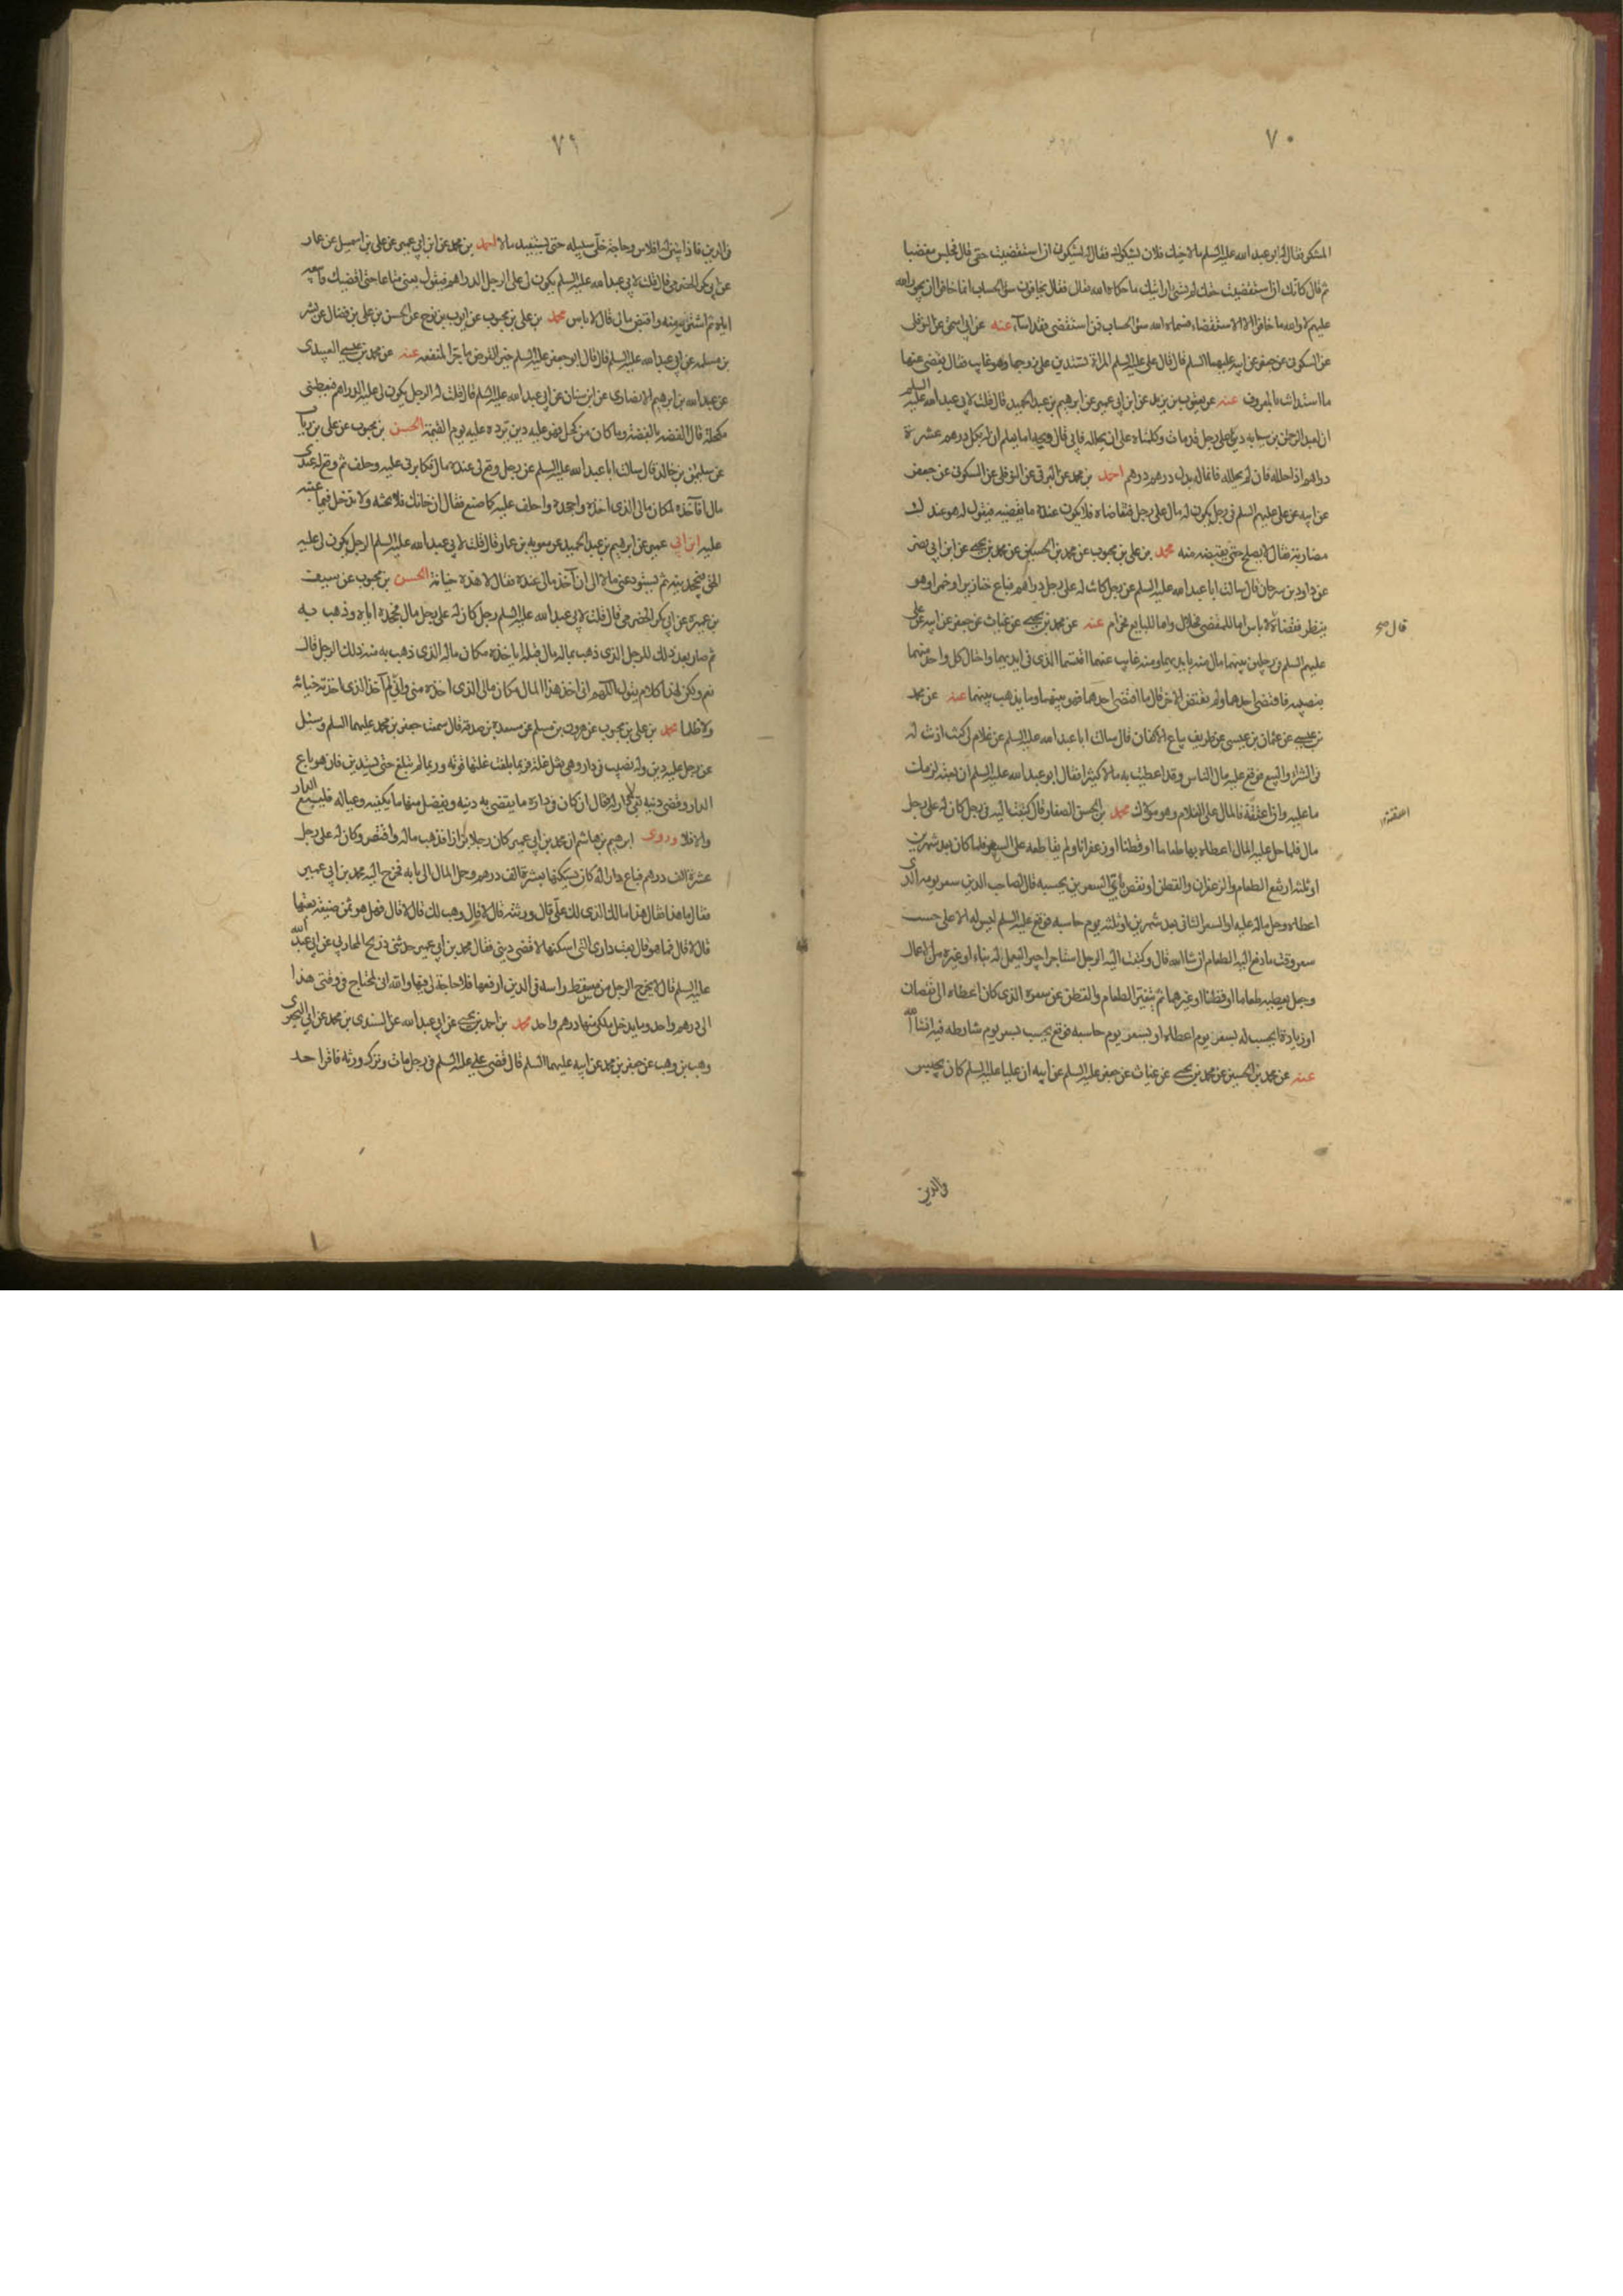 ٧٠
المشكو فقال له ابو عبد الله عليه السلم ما لاخيك فلان يشكوك فقال له يشكوني ان استقضيت حقي قال فجلس مغضبا
ثم قال كانك اذا استقضيت حقك لم تسئ ارايتك ما حكاه الله فقال يخافون سوء الحساب انما خافوا ان يجور الله
عليهم لا والله ما خافوا الا الاستقضاء فسماه الله سوء الحساب فمن استقضى فقد اساء عنه عن ابي اسحق عن النوفلي
عن السكوني عن جعفر عن ابيه عليهما السلم قال قال علي عليه السلم المراة تستدين على زوجها وهو غايب فقال يقضى عنها
ما استدانت بالمعروف عنه عن يعقوب بن يزيد عن ابن ابي عمير عن ابرهيم بن عبد الحميد قال قلت لابي عبد الله عليه السلم
ان لعبد الرحمن بن سيابه دينا على رجل قد مات وكلمناه على ان يحلله فابى قال ويحه اما يعلم ان له بكل درهم عشرة
دراهم اذا حلله فان لم يحلله فانما له بدل درهم درهم احمد بن محمد عن البرقي عن النوفلي عن السكوني عن جعفر
عن ابيه عن علي عليهم السلم في رجل يكون له مال على رجل فتقاضاه فلا يكون عنده ما يقضيه فيقول له هو عندك
مضاربة فقال لا يصلح حتى يقبضه منه محمد بن علي بن محبوب عن محمد بن الحسين عن محمد بن يحيى عن ابن ابي نصر
عن داود بن سرحان قال سالت ابا عبد الله عليه السلم عن رجل كانت له على رجل دراهم فباع خنازير او خمرا وهو
ينظر فقضاه لا باس اما للمقضي فحلال واما للبايع فحرام عنه عن محمد بن يحيى عن غياث عن جعفر عن ابيه عن علي
قال صح
عليهم السلم في رجلين بينهما مال منه بايديهما ومنه غايب عنهما اقتسما الذي في ايديهما واحتال كل واحد منهما
بنصيبه فاقتضى احدهما ولم يقتض الاخر قال ما اقتضى احدهما فهو بينهما وما يذهب بينهما عنه عن محمد
بن عيسى عن عثمان بن عيسى عن ظريف بياع الاكفان قال سالت ابا عبد الله عليه السلم عن غلام لي كنت اذنت له
في الشراء والبيع فوقع عليه مال الناس وقد اعطيت به مالا كثيرا فقال ابو عبد الله عليه السلم ان بعته لزمك
ما عليه وان اعتقته فالمال على الغلام وهو مولاك محمد بن الحسن الصفار قال كتبت اليه في رجل كان له على رجل
اعتقته
مال فلما حل عليه المال اعطاه بها طعاما او قطنا او زعفرانا ولم يقاطعه على السعر فلما كان بعد شهرين
او ثلثه ارتفع الطعام والزعفران والقطن او نقص باي السعرين يحسبه قال لصاحب الدين سعر يومه الذي
اعطاه وحل ماله عليه او السعر الثاني بعد شهرين او ثلثه يوم حاسبه فوقع عليه السلم ليس له الا على حسب
سعر وقت ما دفع اليه الطعام ان شاء الله قال وكتبت اليه الرجل استاجر اجيرا ليعمل له بناء او غيره من الاعمال
وجعل يعطيه طعاما او قطنا او غيرهما ثم يتغير الطعام والقطن عن سعره الذي كان اعطاه الى نقصان
او زيادة ايحسب له بسعر يوم اعطاه او بسعر يوم حاسبه فوقع يحسب بسعر يوم شارطه فيه انشاء الله
عنه عن محمد بن الحسين عن محمد بن يحيى عن غياث عن جعفر عليه السلم عن ابيه ان عليا عليه السلم كان يحبس
في الدين
٧١
في الدين فاذا تبين له افلاس وحاجة خلى سبيله حتى يستفيد مالا احمد بن محمد عن ابن ابي عمير عن علي بن اسمعيل عن عمار
عن ابي بكر الحضرمي قال قلت لابي عبد الله عليه السلم يكون لي على الرجل الدراهم فيقول بعني متاعا حتى اقضيك فابيعه
اياه ثم اشتريه منه واقبض مالي قال لا باس محمد بن علي بن محبوب عن ايوب بن نوح عن الحسن بن علي بن فضال عن بشر
بن مسلمه عن ابي عبد الله عليه السلم قال قال ابو جعفر عليه السلم خير القرض ما جر المنفعه عنه عن محمد بن عيسى العبيدي
عن عبد الله بن ابرهيم الانصاري عن ابن سنان عن ابي عبد الله عليه السلم قال قلت له الرجل يكون لي عليه الدراهم فيعطيني
مكحلة قال الفضة بالفضة وما كان من كحل فهو عليه دين ترده عليه يوم القيمة الحسن بن محبوب عن علي بن رياب
عن سليمن بن خالد قال سالت ابا عبد الله عليه السلم عن رجل وقع لي عنده مال فكابرني عليه وحلف ثم وقع له عندي
مال افاخذه لمكان مالي الذي اخذه واجحده واحلف عليه كما صنع فقال ان خانك فلا تخنه ولا تدخل فيما عبته
عليه ابن ابي عمير عن ابرهيم بن عبد الحميد عن معويه بن عمار قال قلت لابي عبد الله عليه السلم الرجل يكون لي عليه
الحق فيجحدنيه ثم يستودعني مالا الى ان اخذ مالي عنده فقال لا هذه خيانة الحسن بن محبوب عن سيف
بن عميرة عن ابي بكر الحضرمي قال قلت لابي عبد الله عليه السلم رجل كان له على رجل مال فجحده اياه وذهب به
ثم صار بعد ذلك للرجل الذي ذهب بماله مال قبله اياخذه مكان ماله الذي ذهب به منه ذلك الرجل قال
نعم ولكن لهذا كلام يقول اللهم اني اخذ هذا المال مكان مالي الذي اخذه مني واني لم اخذ الذي اخذته خيانة
ولا ظلما محمد بن علي بن محبوب عن هرون بن مسلم عن مسعدة بن صدقة قال سمعت جعفر بن محمد عليهما السلم وسئل
عن رجل عليه دين وله نصيب في دار وهي تغل غلة فربما بلغت غلتها قوته وربما لم تبلغ حتى يستدين فان هو باع
الدار وقضى دينه بقي لا دار له فقال ان كان في داره ما يقضي به دينه ويفضل منها ما يكفيه وعياله فليبع الدار
والا فلا وروى ابرهيم بن هاشم ان محمد بن ابي عمير كان رجلا بزازا فذهب ماله وافتقر وكان له على رجل
عشرة الف درهم فباع دارا له كان يسكنها بعشرة الف درهم وحمل المال الى بابه فخرج اليه محمد بن ابي عمير
فقال ما هذا فقال هذا مالك الذي لك علي قال ورثته قال لا قال وهب لك قال لا قال فهل هو ثمن ضيعة بعتها
قال لا قال فما هو قال بعت داري التي اسكنها لاقضي ديني فقال محمد بن ابي عمير حدثني ذريح المحاربي عن ابي عبد الله
عليه السلم قال لا يخرج الرجل من مسقط راسه في الدين ارفعها فلا حاجة لي فيها والله اني لمحتاج في وقتي هذا
الى درهم واحد وما يدخل ملكي منها درهم واحد محمد بن احمد بن يحيى عن ابي عبد الله عن السندي بن محمد عن ابي البختري
وهب بن وهب عن جعفر بن محمد عن ابيه عليهما السلم قال قضى علي عليه السلم في رجل مات وترك ورثه فاقر احد